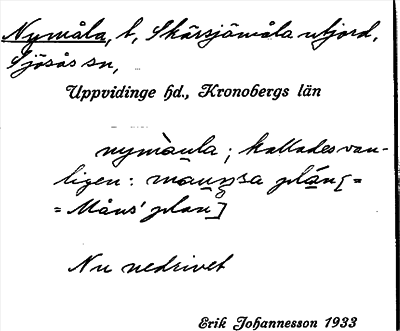 Nymåla, t, Skärsjömåla utjord,
Sjösås sn,
Uppvidinge hd., Kronobergs län
nymåula; kallades van-
ligen: måunsa plán [=
= Måns' plan]
Nu nedrivet
Erik Johannesson 1933